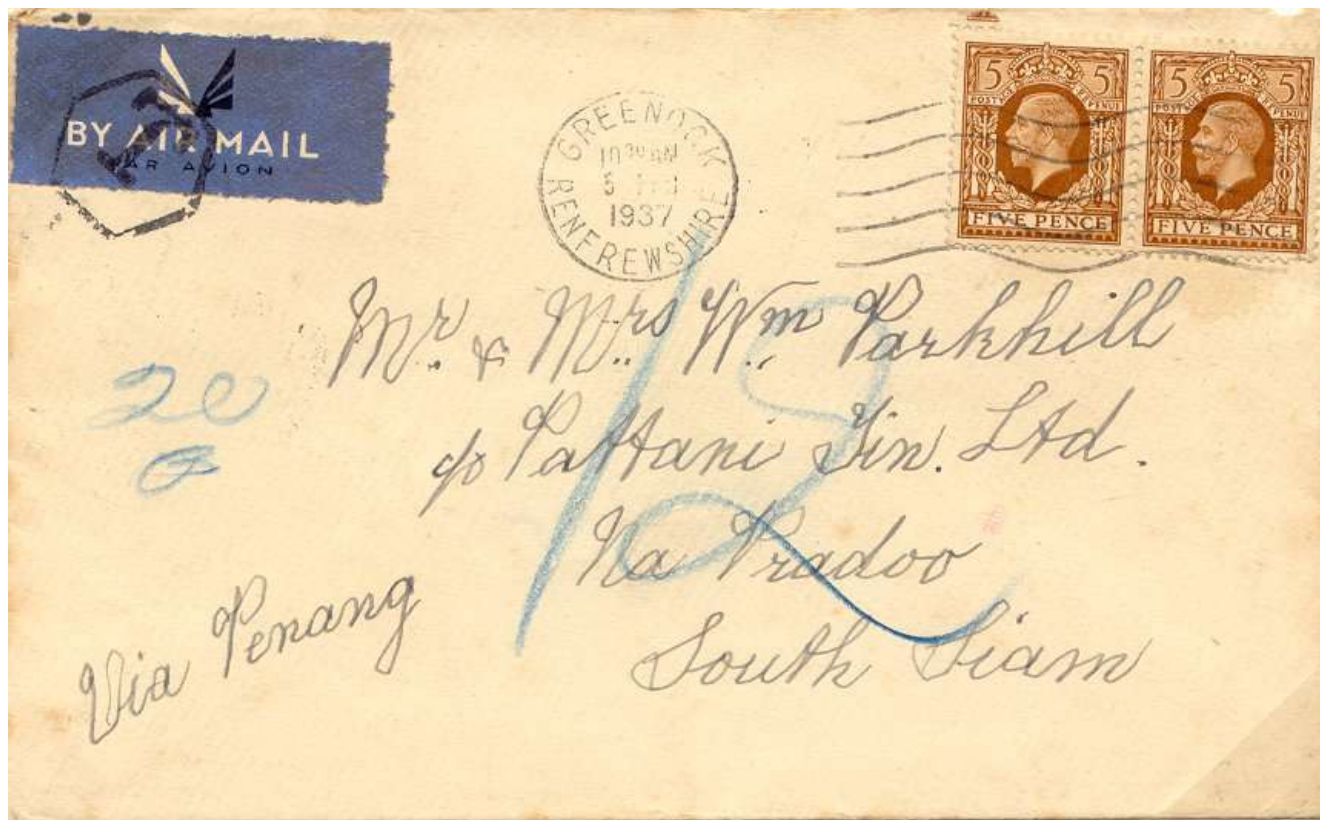 BY AIR MAIL
PAR AVION
T
GREENOCK
RENFREWSHIRE
1937
5 5
POSTAGE REVENUE
FIVE PENCE
5 5
POSTAGE REVENUE
FIVE PENCE
Mr. & Mrs. Wm. Parkhill
c/o Pattani Tin. Ltd.
Na Pradoo
South Siam
Via Penang
12